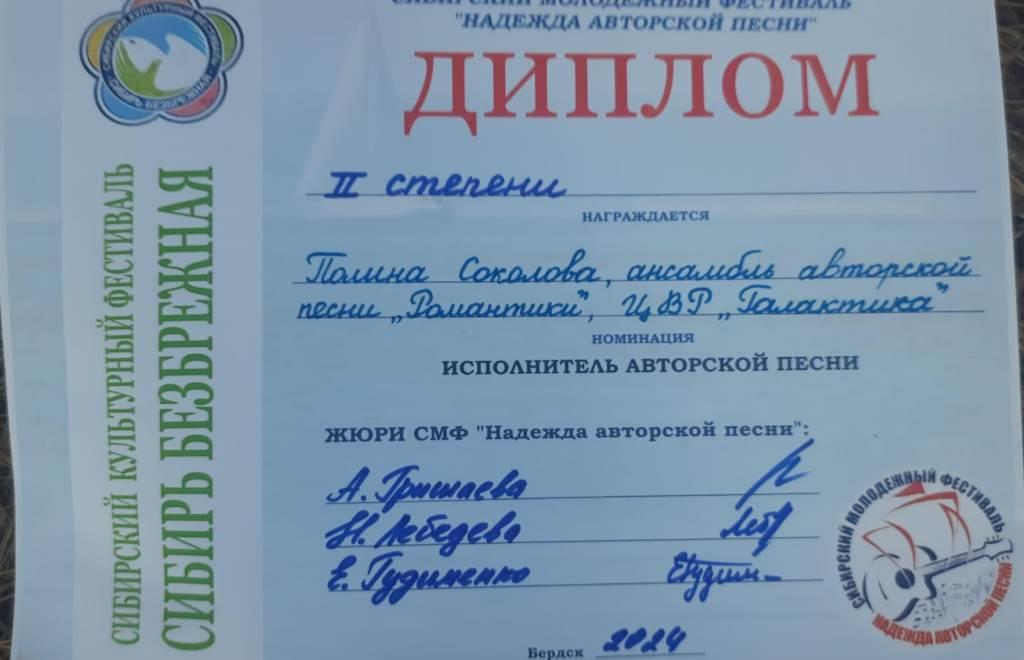 СИБИРСКИЙ МОЛОДЕЖНЫЙ ФЕСТИВАЛЬ
"НАДЕЖДА АВТОРСКОЙ ПЕСНИ"
ДИПЛОМ
II степени
НАГРАЖДАЕТСЯ
Полина Соколова, ансамбль авторской
песни „Романтики", ЦВР „Галактика"
НОМИНАЦИЯ
ИСПОЛНИТЕЛЬ АВТОРСКОЙ ПЕСНИ
ЖЮРИ СМФ "Надежда авторской песни":
А. Гришаева
Н. Лебедева
Е. Гудименко
Бердск 2024
СИБИРСКИЙ КУЛЬТУРНЫЙ ФЕСТИВАЛЬ
СИБИРЬ БЕЗБРЕЖНАЯ
СИБИРСКИЙ КУЛЬТУРНЫЙ ФЕСТИВАЛЬ
СИБИРЬ БЕЗБРЕЖНАЯ
СИБИРСКИЙ МОЛОДЕЖНЫЙ ФЕСТИВАЛЬ
НАДЕЖДА АВТОРСКОЙ ПЕСНИ